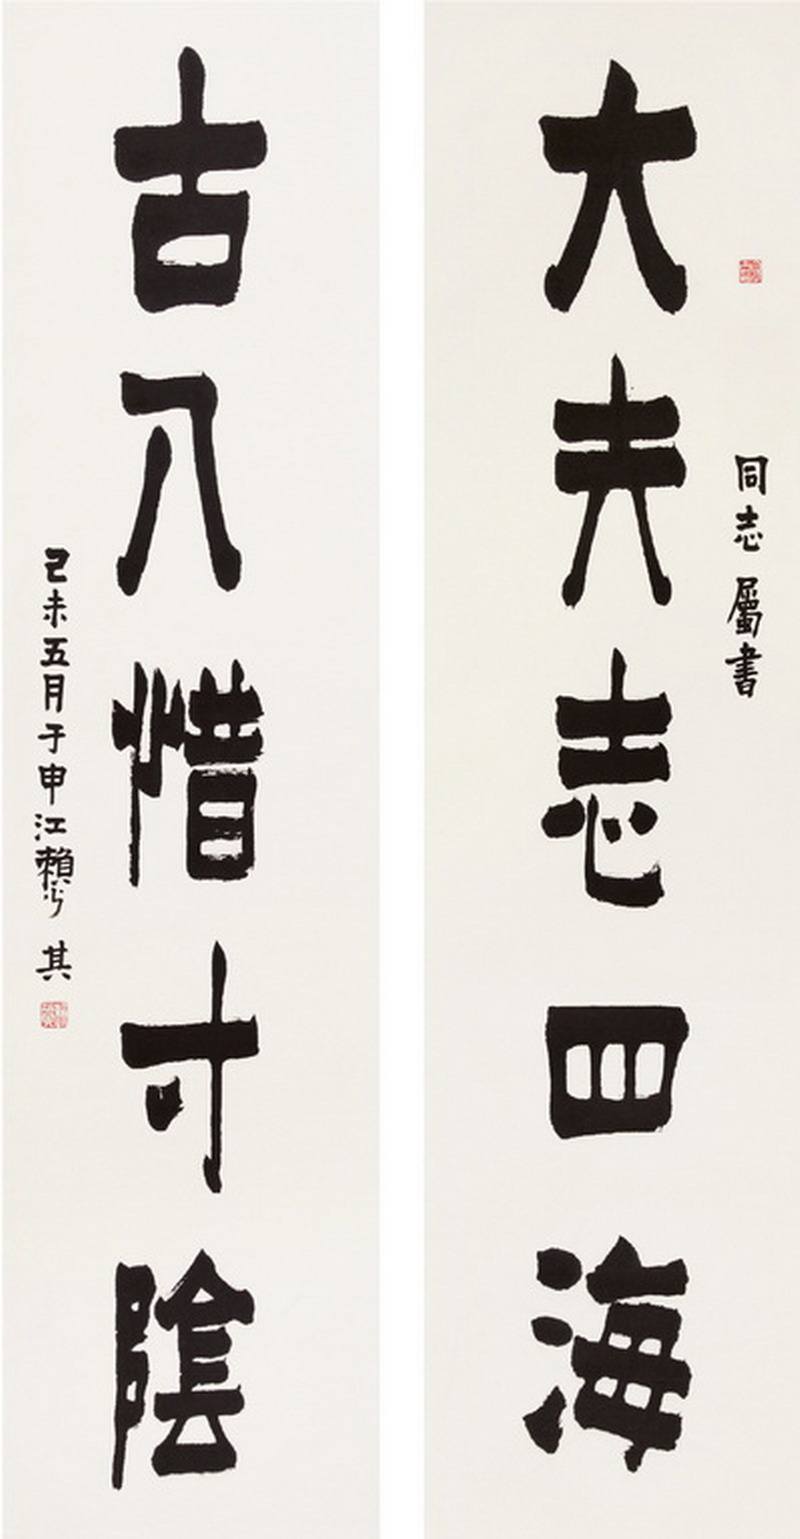 同志屬書
大夫志四海
古人惜寸陰
己未五月于申江賴少其